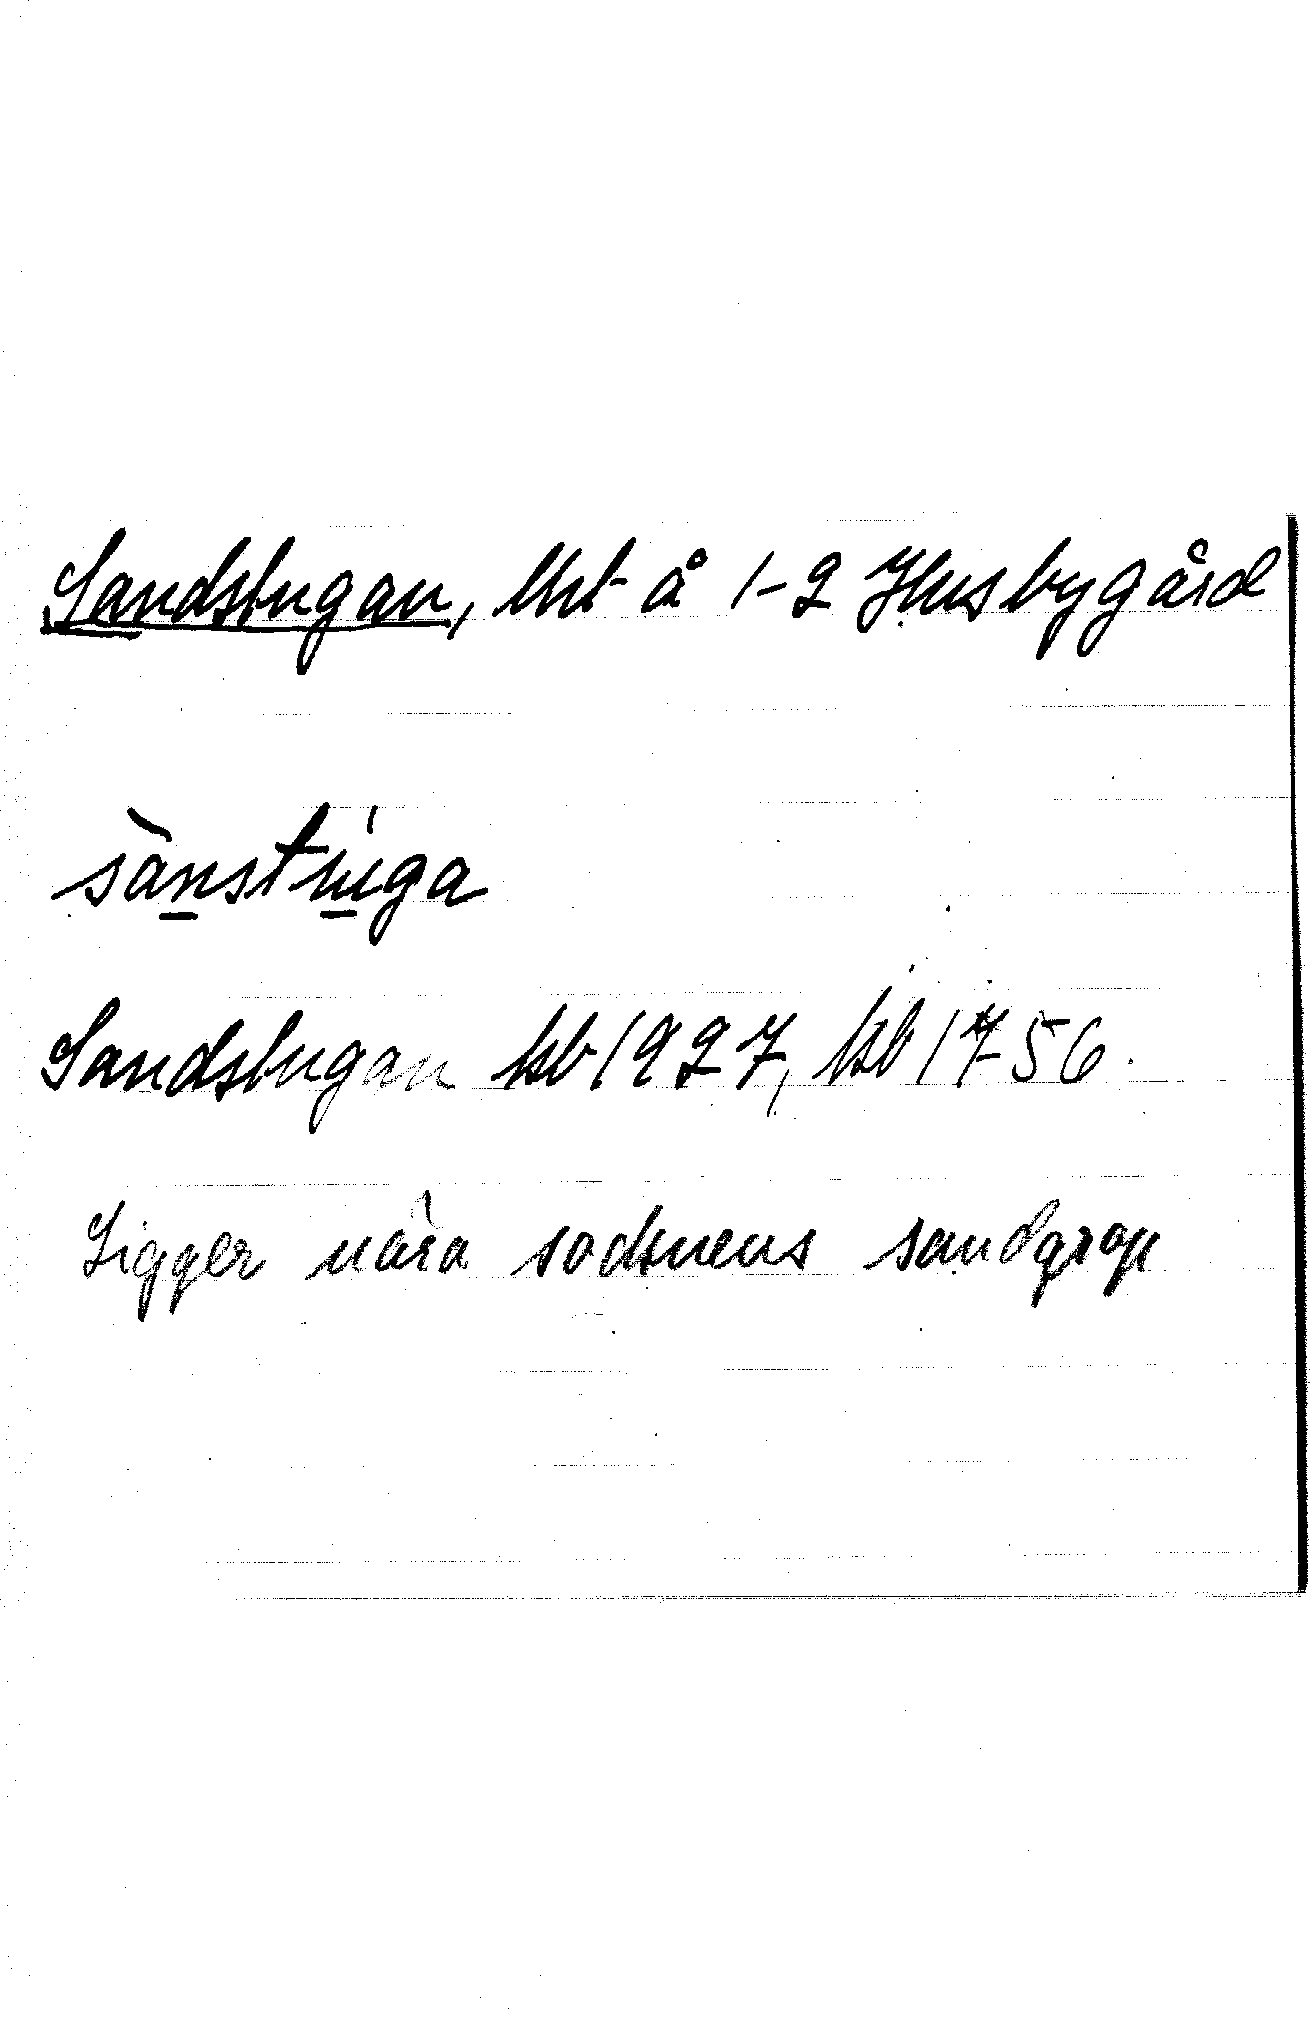 Sandstugan, lht å 1-2 Husbygård
sànstúga
Sandstugan kb 1927, kb 1756.
Ligger nära socknens sandgrop